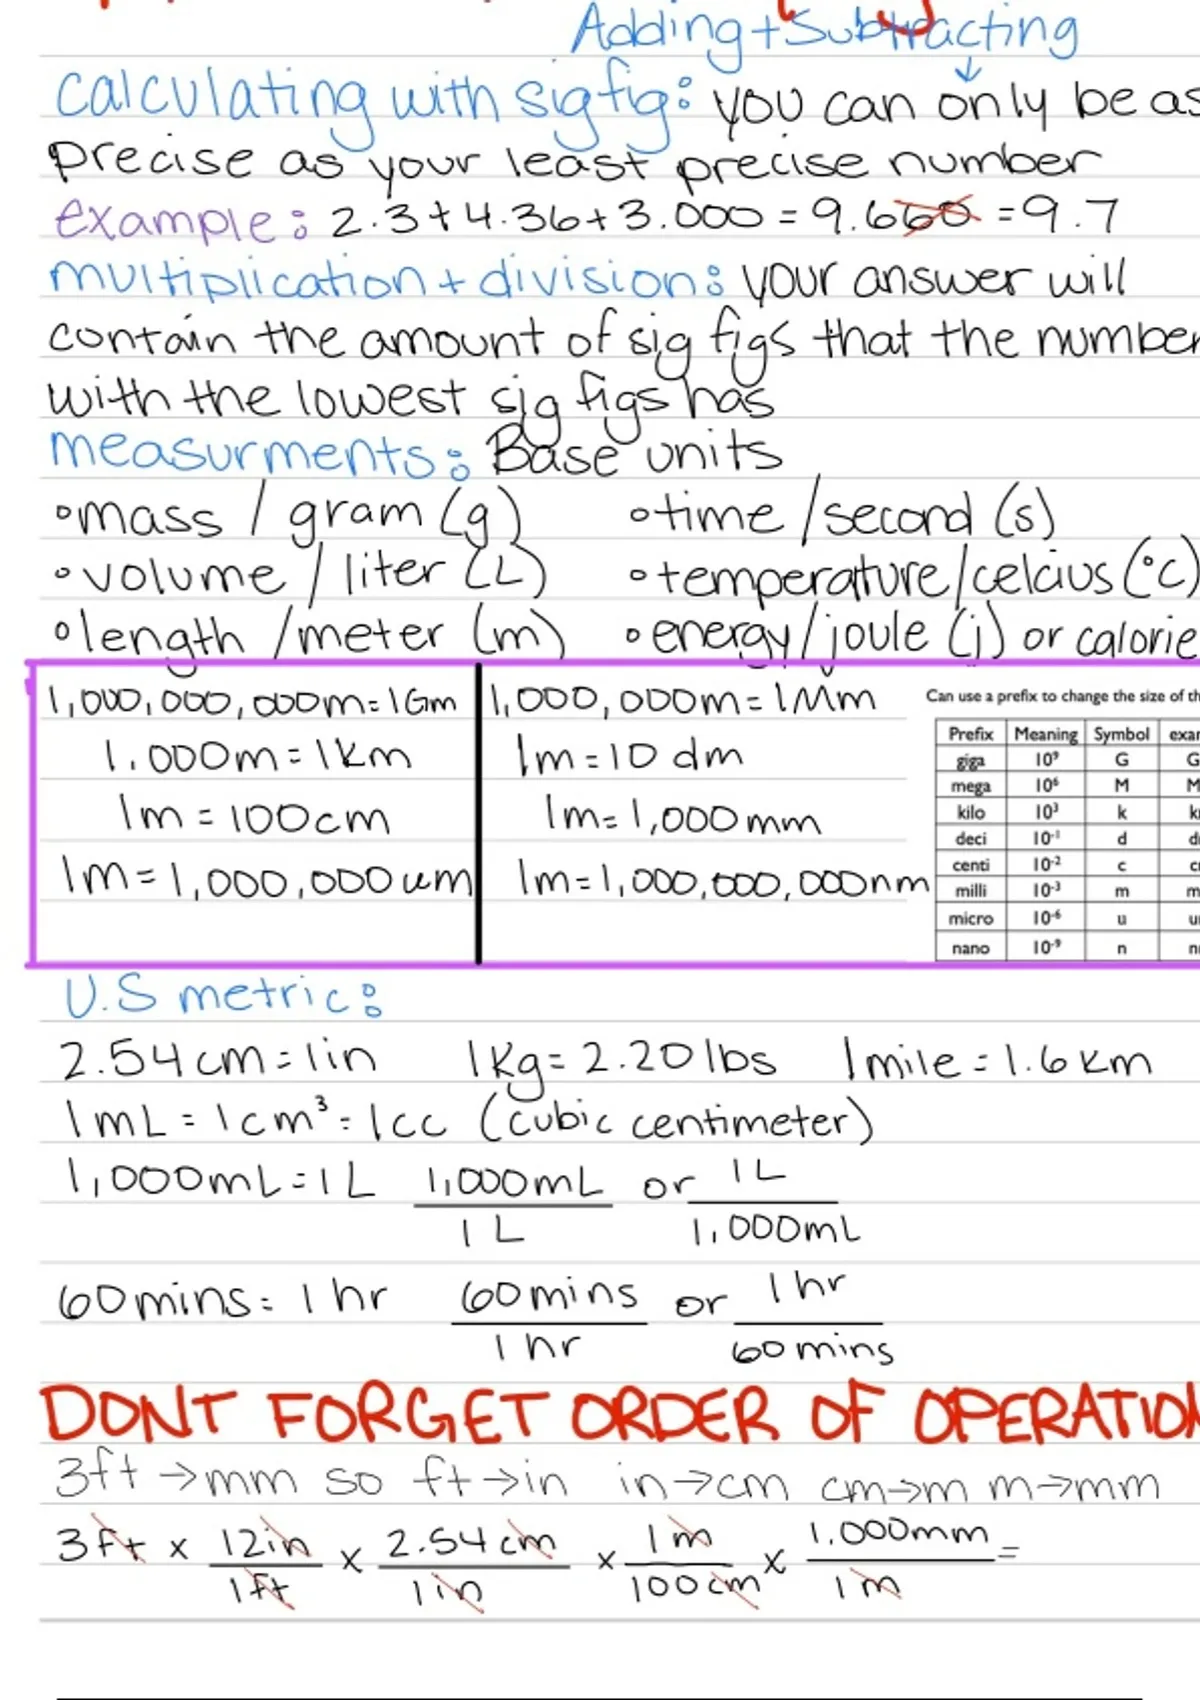 Adding + Subtracting
calculating with sig fig: you can only be as
precise as your least precise number
example: 2.3 + 4.36 + 3.000 = 9.660 = 9.7
multiplication + division: your answer will
contain the amount of sig figs that the number
with the lowest sig figs has
measurments: Base units
◦mass / gram (g) ◦time / second (s)
◦volume / liter (L) ◦temperature/celcius (°C)
◦length / meter (m) ◦energy/joule (j) or calorie
1,000,000,000m = 1Gm 1,000,000m = 1Mm
1,000m = 1km 1m = 10 dm
1m = 100cm 1m = 1,000mm
1m = 1,000,000um 1m = 1,000,000,000nm
Can use a prefix to change the size of th
Prefix Meaning Symbol exar
giga 10⁹ G G
mega 10⁶ M M
kilo 10³ k k
deci 10⁻¹ d d
centi 10⁻² c c
milli 10⁻³ m m
micro 10⁻⁶ u u
nano 10⁻⁹ n n
U.S metric:
2.54cm = 1in 1kg = 2.20 lbs 1 mile = 1.6 km
1mL = 1cm³ = 1cc (cubic centimeter)
1,000mL = 1L 1,000mL or 1L
1L 1,000mL
60mins = 1hr 60mins or 1hr
1hr 60mins
DONT FORGET ORDER OF OPERATION
3ft → mm so ft → in in → cm cm → m m → mm
3ft x 12in x 2.54cm x 1m x 1,000mm =
1ft 1in 100cm 1m